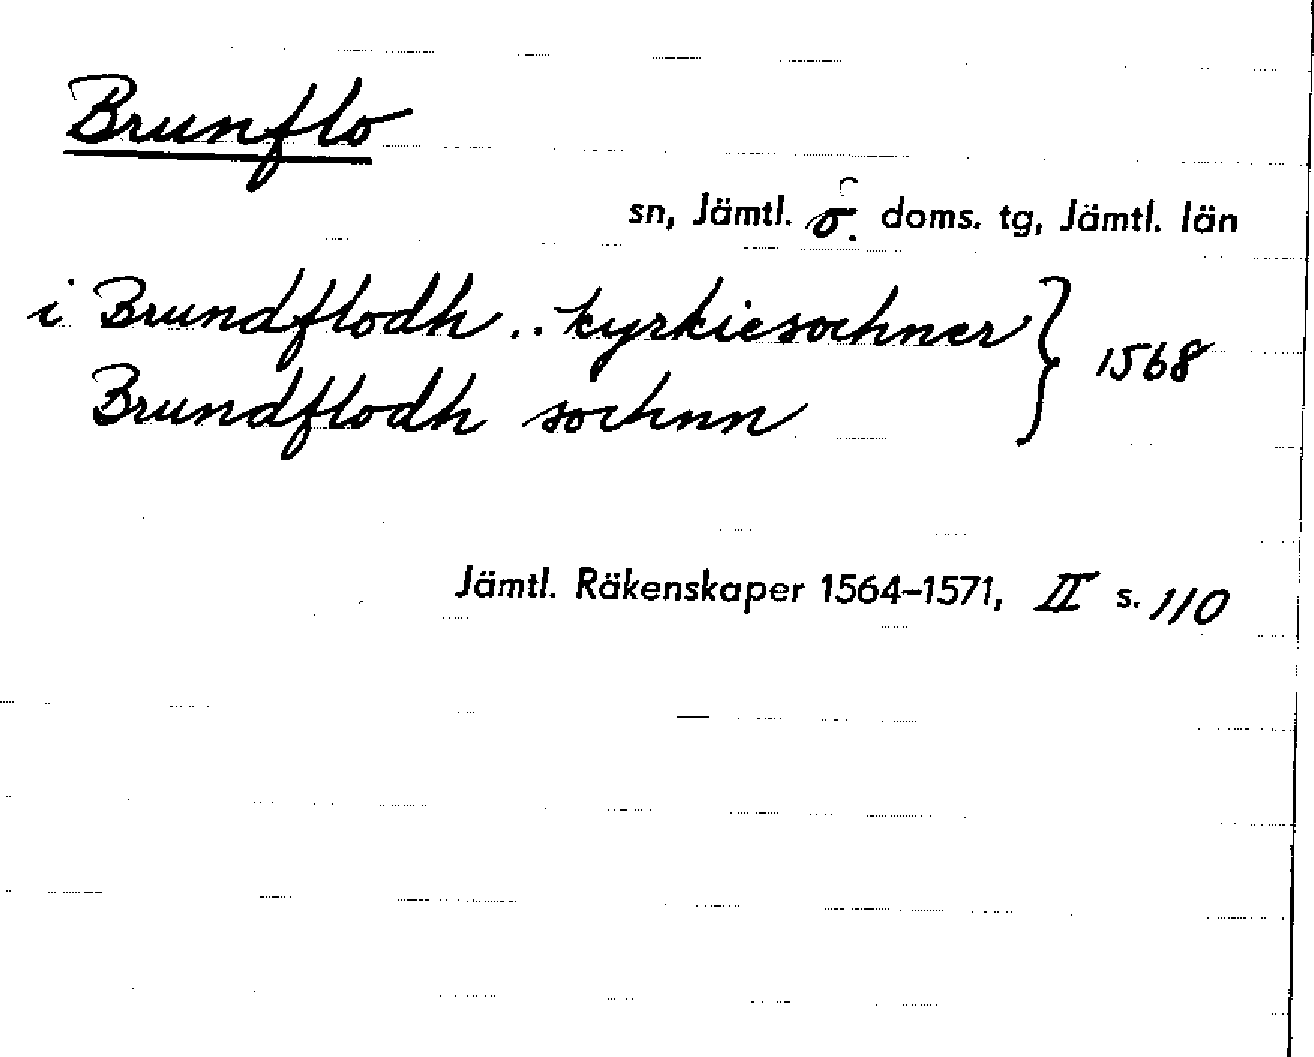 Brunflo
sn, Jämtl. ö. doms. tg, Jämtl. län
i Brundflodh .. kyrkiesochner } 1568
Brundflodh sochnn
Jämtl. Räkenskaper 1564–1571, II s. 110